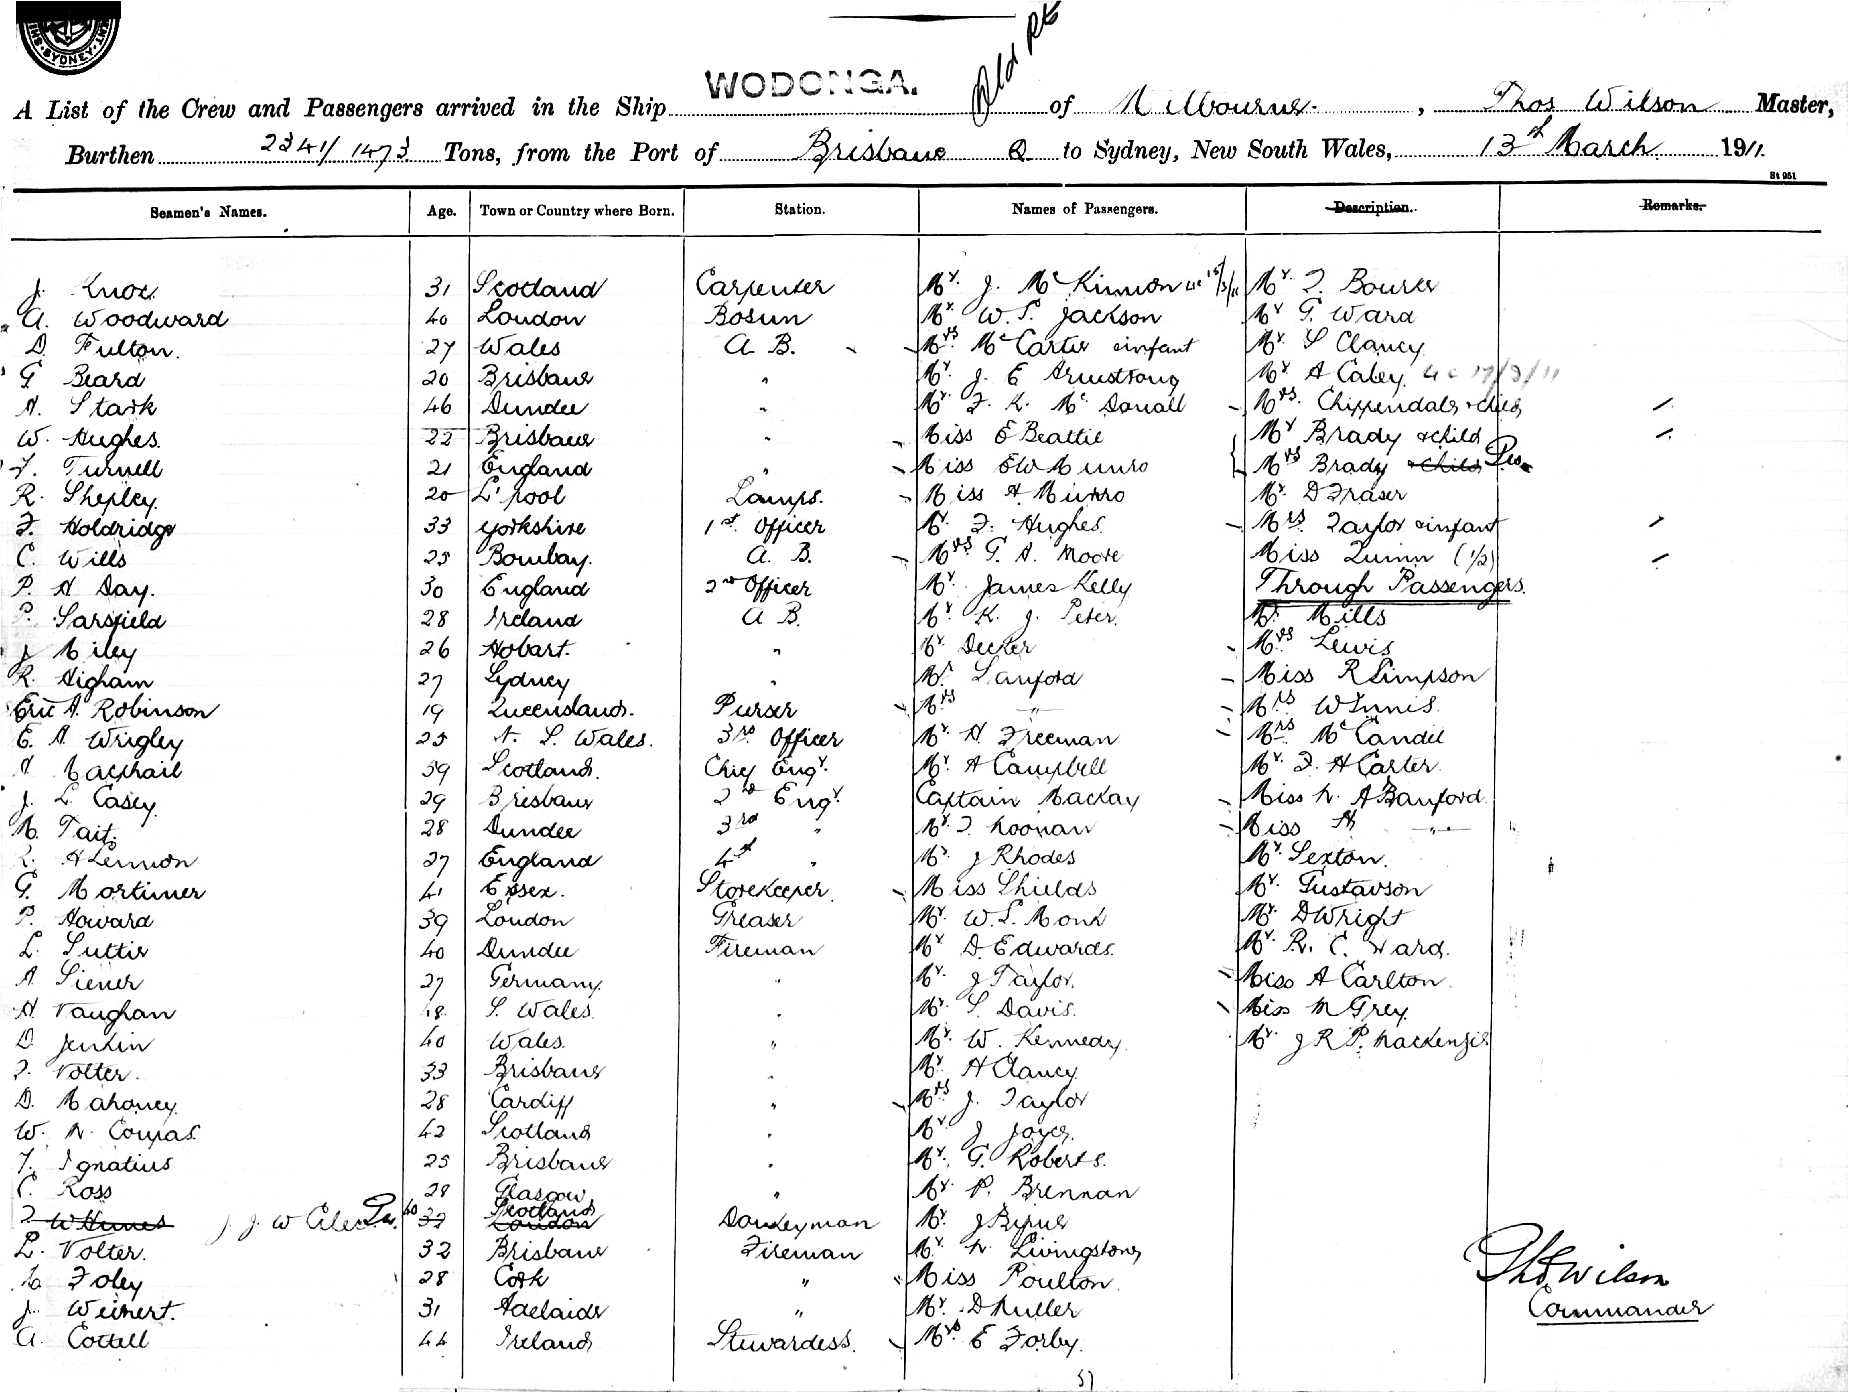 SYDNEY
Old Rt
WODONGA.
A List of the Crew and Passengers arrived in the Ship of Melbourne. , Thos Wilson Master,
Burthen 2341/1473 Tons, from the Port of Brisbane Q to Sydney, New South Wales, 13th March 1911.
St 951
Seamen's Names. Age. Town or Country where Born. Station. Names of Passengers. Description. Remarks.
J. Knox 31 Scotland Carpenter Mr. J. McKinnon Mr. F. Bourer
A. Woodward 40 London Bosun Mr. W. S. Jackson Mr G. Ward
D. Fulton. 27 Wales A B. Mrs. McCarter & infant Mr. S Clancy
G Beard 20 Brisbane " Mr. J. E Armstrong Mr A Caley. 17/3/11
A. Stark 46 Dundee " Mr F. K. McDonall Mrs. Chippendale & child
W. Hughes. 22 Brisbane " Miss E Beattie Mr Brady & child
F. Turnell 21 England " Miss EW Munro Mrs Brady & child
R. Shepley. 20 L'pool Lamps. Miss A Munro Mr. D Fraser
F. Holdridge 33 Yorkshire 1st Officer Mr. F. Hughes. Mrs. Taylor & infant
C. Wills 25 Bombay. A. B. Mrs G. A. Moore Miss Quinn (1/2)
P. A Day. 30 England 2nd Officer Mr. James Kelly Through Passengers.
P. Sarsfield 28 Ireland A B. Mr. K. J. Peter. Mr. Mills
J Miley 26 Hobart. " Mr. Decker Mrs Lewis
R. Higham 27 Sydney " Mr. Sanford Miss R Simpson
Eric A. Robinson 19 Queensland. Purser Mrs " Mrs W Innis.
E. A Wrigley 25 N. S. Wales. 3rd Officer Mr. A. Freeman Mrs. McCandie
A Macphail 59 Scotland. Chief Engr. Mr. A Campbell Mr. F. H Carter.
J. L. Casey. 29 Brisbane 2nd Engr. Captain Mackay Miss N. A Banford.
M. Tait. 28 Dundee 3rd " Mr. F. Noonan Miss A "
A Lennon 27 England 4th " Mr. J Rhodes Mr. Sexton.
G. Mortimer 41 Essex. Storekeeper. Miss Shields Mr. Gustavson
P. Howard 39 London Greaser Mr. W. S. Monk Mr. D Wright
L. Suttie 40 Dundee Fireman Mr D. Edwards. Mr. R. C. Ward.
A Siener 27 Germany. " Mr. J Taylor. Miss A Carlton.
A Vaughan 48 S. Wales. " Mr. S. Davis. Miss M Grey.
D. Jenkin 40 Wales. " Mr. W. Kennedy Mr. J R P. Mackenzie
F. Volter. 33 Brisbane " Mr. A Clancy.
D. Mahoney. 28 Cardiff " Mrs J. Taylor
W. N. Compas. 42 Scotland " Mr. J Joyce.
F. Ignatius 25 Brisbane " Mr. G. Roberts.
C. Ross 28 Glasgow " Mr. P. Brennan
J. W 40 Scotland London Donkeyman Mr. J Byrne
L. Volter. 32 Brisbane Fireman Mr. N. Livingstone
M Foley 28 Cork " Miss Poulton.
J. Weinert. 31 Adelaide " Mr. D Muller
A. Cottell 44 Ireland Stewardess. Mrs E Forby.
Thos. Wilson
Commander
57